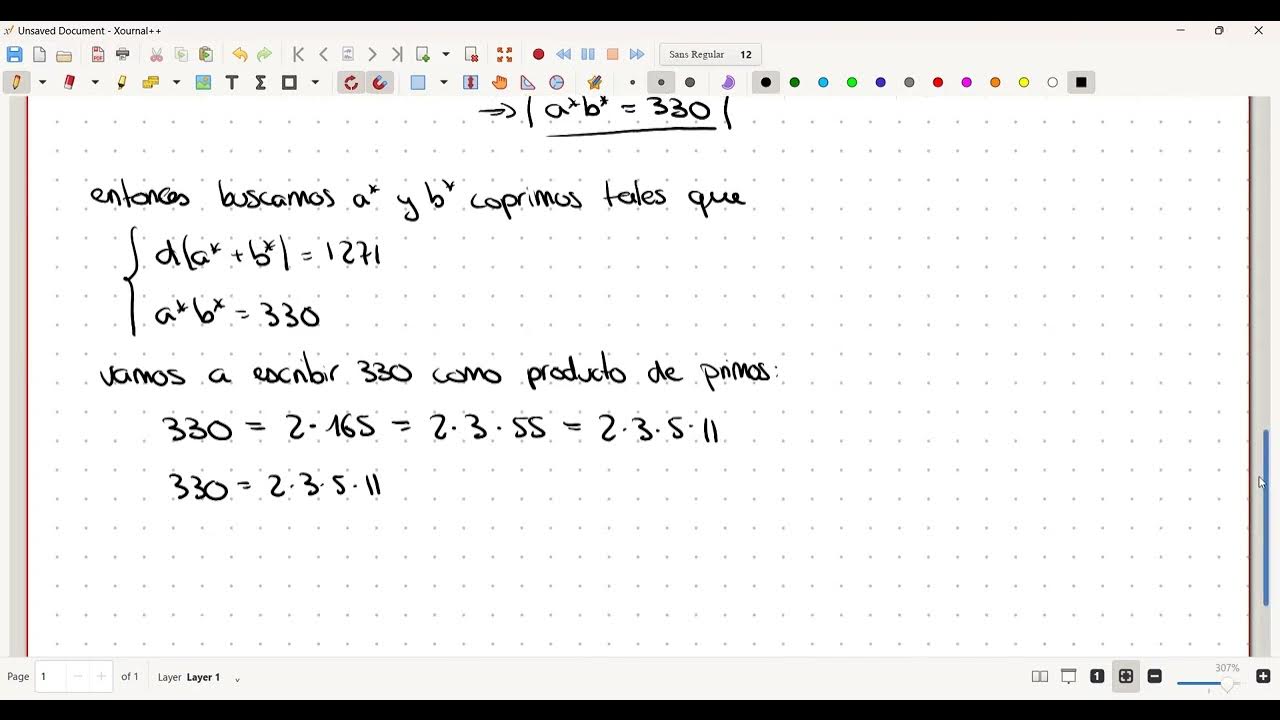 Unsaved Document - Xournal++
Sans Regular 12
⇒ | a*b* = 330 |
entonces buscamos a* y b* coprimos tales que
d(a* + b*) = 1271
a*b* = 330
vamos a escribir 330 como producto de primos:
330 = 2·165 = 2·3·55 = 2·3·5·11
330 = 2·3·5·11
Page 1 of 1 Layer Layer 1
307%